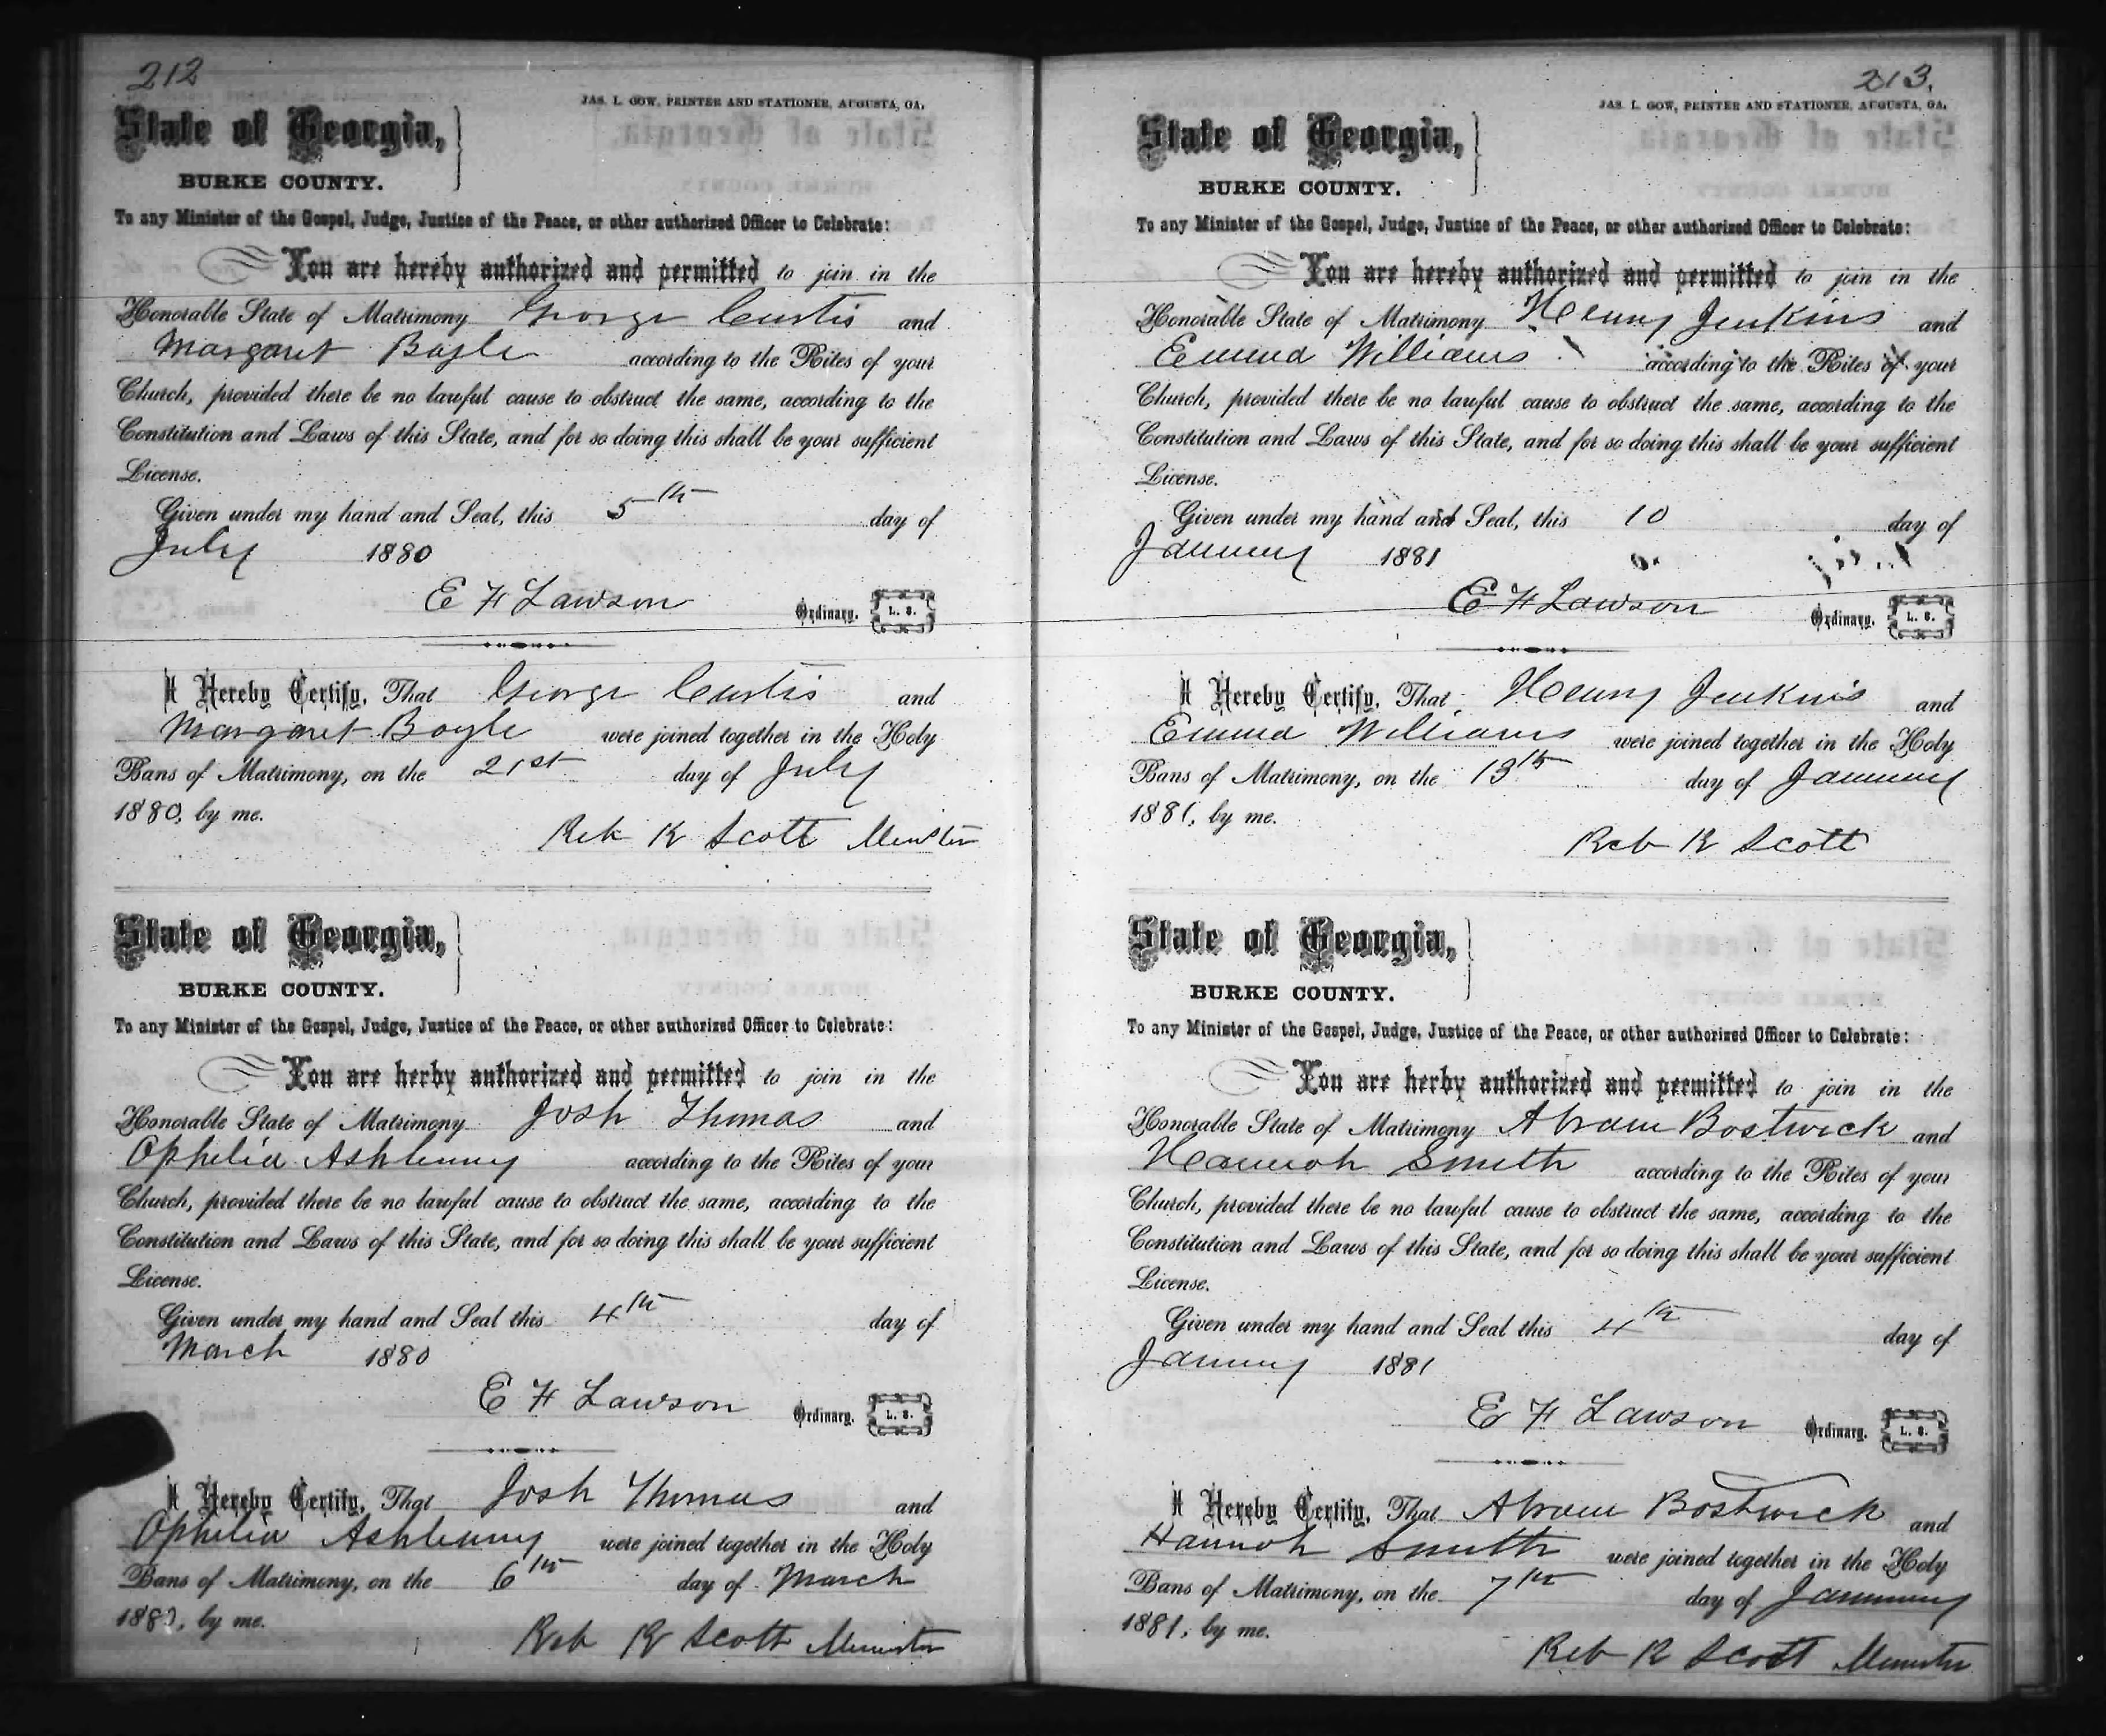 212
JAS. L. GOW, PRINTER AND STATIONER, AUGUSTA, GA.
State of Georgia,
BURKE COUNTY.
To any Minister of the Gospel, Judge, Justice of the Peace, or other authorized Officer to Celebrate:
You are hereby authorized and permitted to join in the
Honorable State of Matrimony George Curtis and
Margaret Bayle according to the Rites of your
Church, provided there be no lawful cause to obstruct the same, according to the
Constitution and Laws of this State, and for so doing this shall be your sufficient
License.
Given under my hand and Seal, this 5th day of
July 1880
E F Lawson Ordinary. L. S.
I Hereby Certify, That George Curtis and
Margaret Boyle were joined together in the Holy
Bans of Matrimony, on the 21st day of July
1880, by me.
R Scott Minister
State of Georgia,
BURKE COUNTY.
To any Minister of the Gospel, Judge, Justice of the Peace, or other authorized Officer to Celebrate:
You are herby authorized and permitted to join in the
Honorable State of Matrimony Josh Thomas and
Ophelia according to the Rites of your
Church, provided there be no lawful cause to obstruct the same, according to the
Constitution and Laws of this State, and for so doing this shall be your sufficient
License.
Given under my hand and Seal this 4th day of
March 1880
E F Lawson Ordinary. L. S.
I Hereby Certify, That Josh Thomas and
Ophelia were joined together in the Holy
Bans of Matrimony, on the 6th day of March
1880, by me.
R Scott Minister
213.
JAS. L. GOW, PRINTER AND STATIONER, AUGUSTA, GA.
State of Georgia,
BURKE COUNTY.
To any Minister of the Gospel, Judge, Justice of the Peace, or other authorized Officer to Celebrate:
You are hereby authorized and permitted to join in the
Honorable State of Matrimony Henry Jenkins and
Emma Williams according to the Rites of your
Church, provided there be no lawful cause to obstruct the same, according to the
Constitution and Laws of this State, and for so doing this shall be your sufficient
License.
Given under my hand and Seal, this 10 day of
January 1881
E F Lawson Ordinary. L. S.
I Hereby Certify, That Henry Jenkins and
Emma Williams were joined together in the Holy
Bans of Matrimony, on the 13th day of January
1881, by me.
R Scott
State of Georgia,
BURKE COUNTY.
To any Minister of the Gospel, Judge, Justice of the Peace, or other authorized Officer to Celebrate:
You are herby authorized and permitted to join in the
Honorable State of Matrimony Abram Bostwick and
Hannah Smith according to the Rites of your
Church, provided there be no lawful cause to obstruct the same, according to the
Constitution and Laws of this State, and for so doing this shall be your sufficient
License.
Given under my hand and Seal this 4th day of
January 1881
E F Lawson Ordinary. L. S.
I Hereby Certify, That Abram Bostwick and
Hannah Smith were joined together in the Holy
Bans of Matrimony, on the 7th day of January
1881, by me.
R Scott Minister